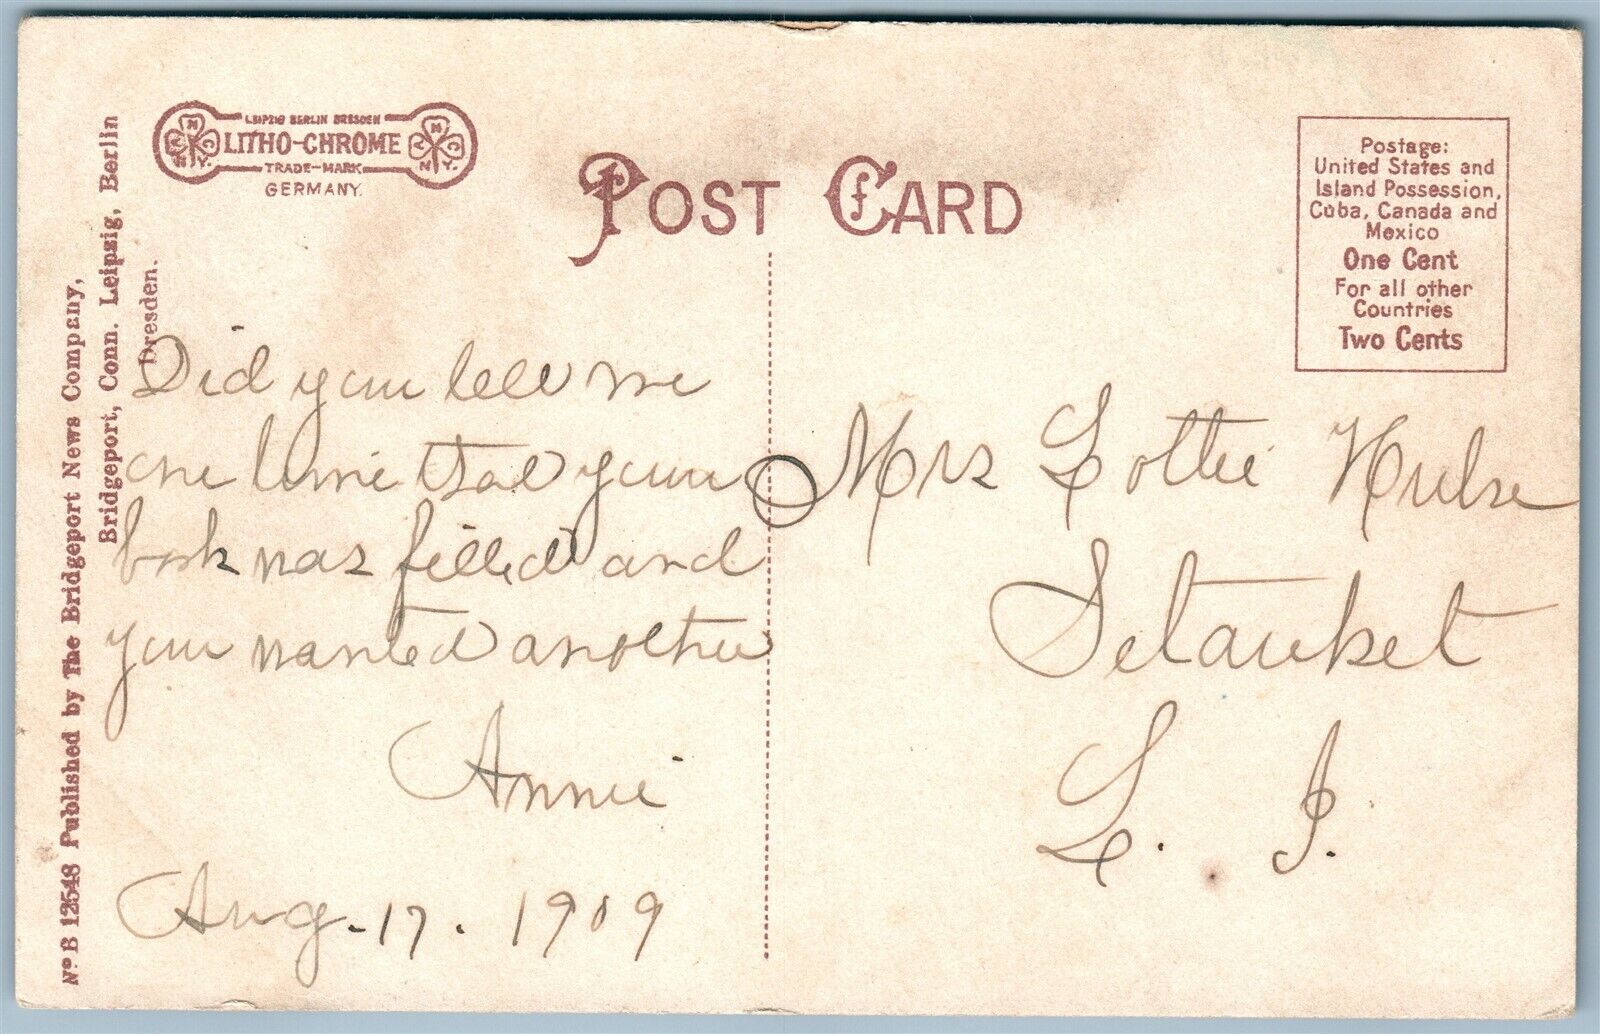 LEIPZIG BERLIN DRESDEN
LITHO-CHROME
TRADE-MARK
GERMANY.
POST CARD
Postage:
United States and
Island Possession,
Cuba, Canada and
Mexico
One Cent
For all other
Countries
Two Cents
Nº B 12548 Published by The Bridgeport News Company,
Bridgeport, Conn. Leipzig, Berlin
Dresden.
Did you tell me
one time that your
book was filled and
you wanted another
Annie
Aug. 17. 1909
Mrs Lottie Hulse
Setauket
L. I.